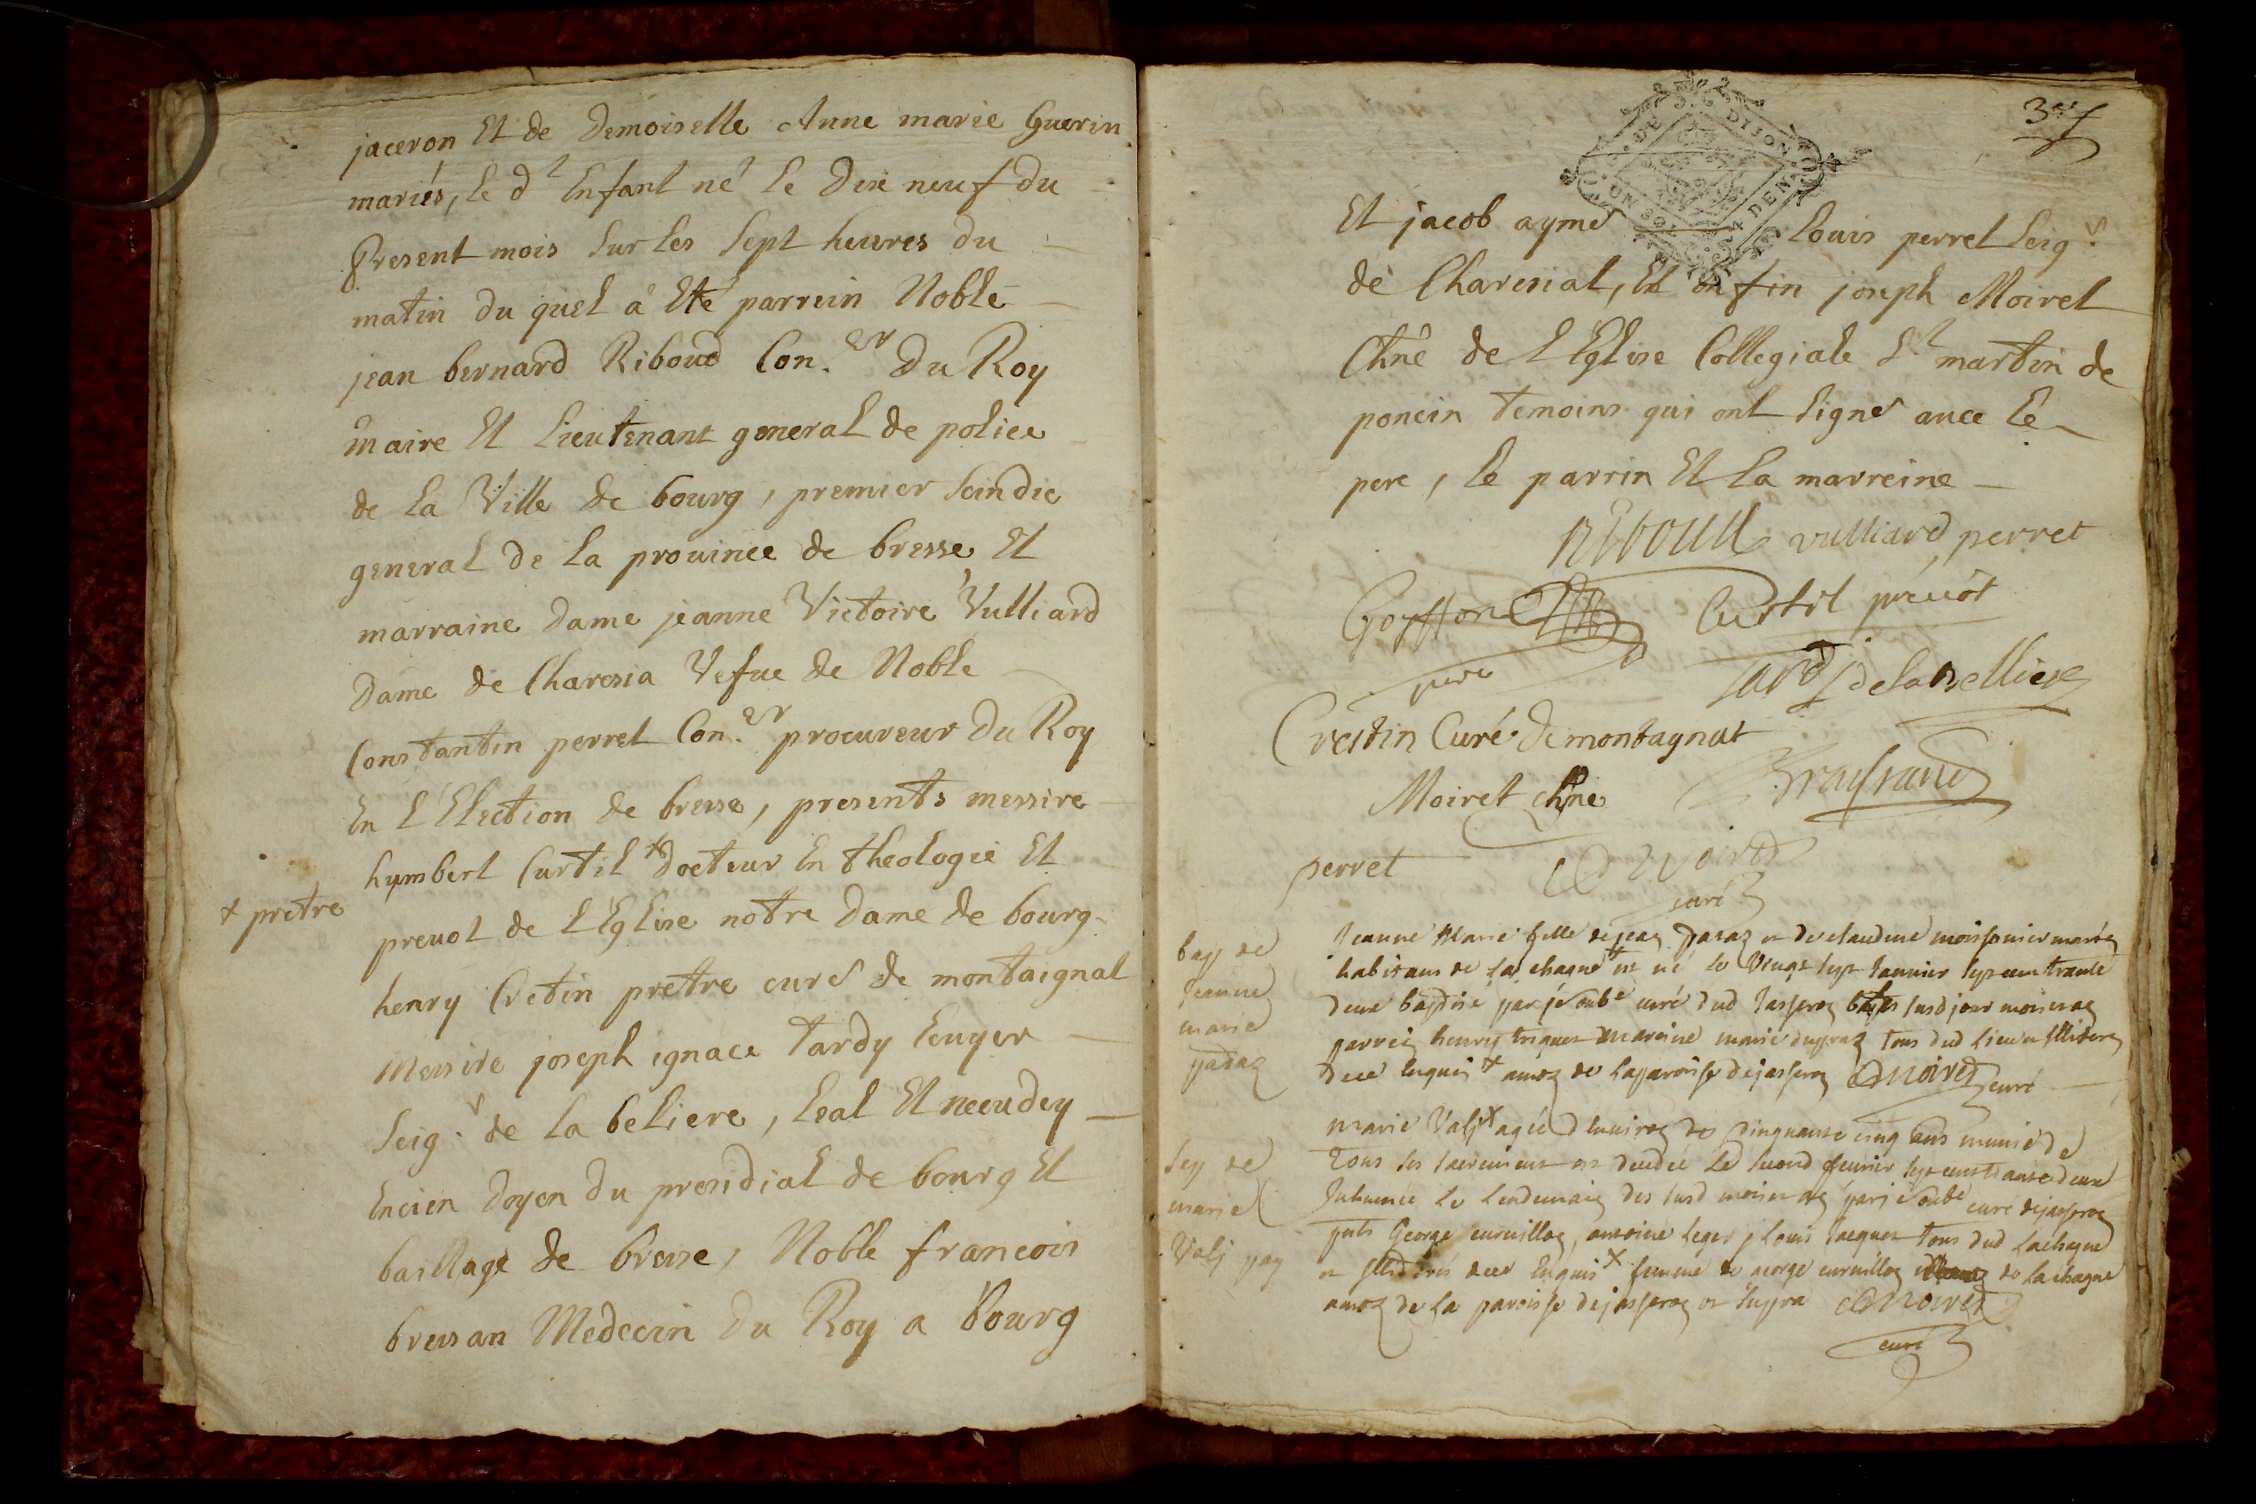 jaceron Et de Demoiselle Anne marie Guerin
mariés, le dt Enfant né le Dixneuf du
Present mois sur les sept heures du
matin du quel a Eté parrein Noble
jean bernard Riboud Con.er Du Roy
maire Et Lieutenant general de police
de la Ville de bourg, premier Scindic
general de la prouince de bresse Et
marraine Dame jeanne Victoire Vulliard
Dame de Charesia Vefue de Noble
Constantin perret Con.er procureur Du Roy
En l'Election de bresse, presents messire
humbert Curtil + Docteur En theologie Et
+ pretre
preuot de l'Eglise notre Dame de bourg
henry Cretin pretre curé de montaignat
Messire joseph ignace tardy Ecuyer
Seig.r de la beliere, Leal Et necudey
Encien Doyen du presidial de bourg Et
baillage de bresse, Noble francois
bressan Medecin Du Roy a Bourg
3e f
DE DIJON
Et jacob aymé Louis perret Seig.r
de Charesiat, Et Enfin joseph Moiret
Chne de l'Eglise Collegiale St martin de
poncin temoins qui ont signé auec le
pere, le parrin Et la marreine
Riboud vulliard perret
Goyffon Curtil preuôt
pere
tardy de la Belliere
Crestin Curé de montagnat
Moiret chne
perret
curé
bap de
Jeanne
marie
paraz
Jeanne Marie fille de jean paraz et de claudine moissonier mariés
habitans de la chagne est né le vingt sept januier sept cent trante
deux baptisé par je curé dud Jasseron susd jour mois et an
parrein henry maraine marie dupraz tous dud lieu et illiterez
de ce enquis + de la paroisse de jasseron curé
Sep de
marie
Valj
marie Valj + agée d'enuiron de cinquante cinq ans munie de
tous les sacremens est decedée le second feurier sept cent trante deux
Inhumée le lendemain des susd mois et an par je curé de jasseron
pnts George antoine leger, Louis tous dud Lachagne
et illiterés de ce Enquis + femme de george de Lachagne
de la paroisse de jasseron et supra
curé